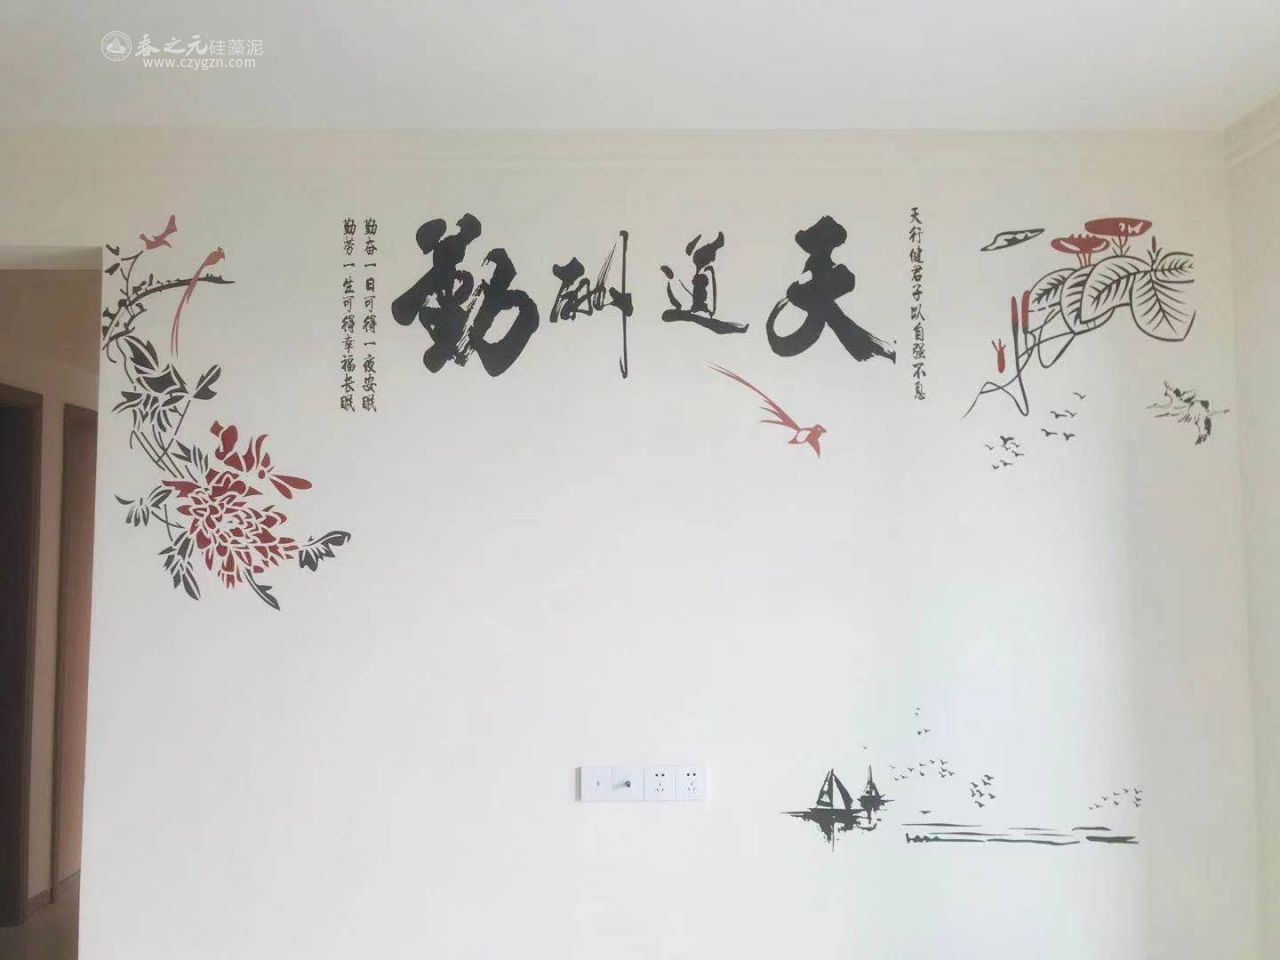 春之元硅藻泥
www.czygzn.com
天行健君子以自强不息
天道酬勤
勤奋一日可得一夜安眠
勤劳一生可得幸福长眠